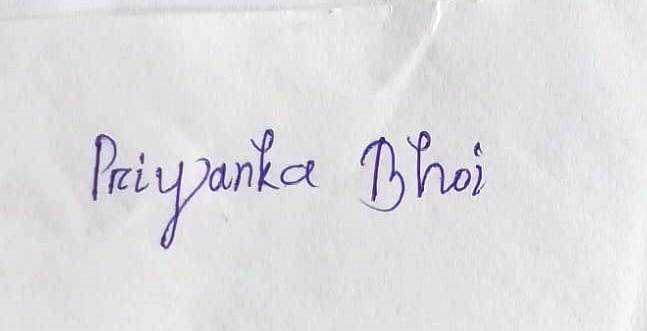 Priyanka Bhoi